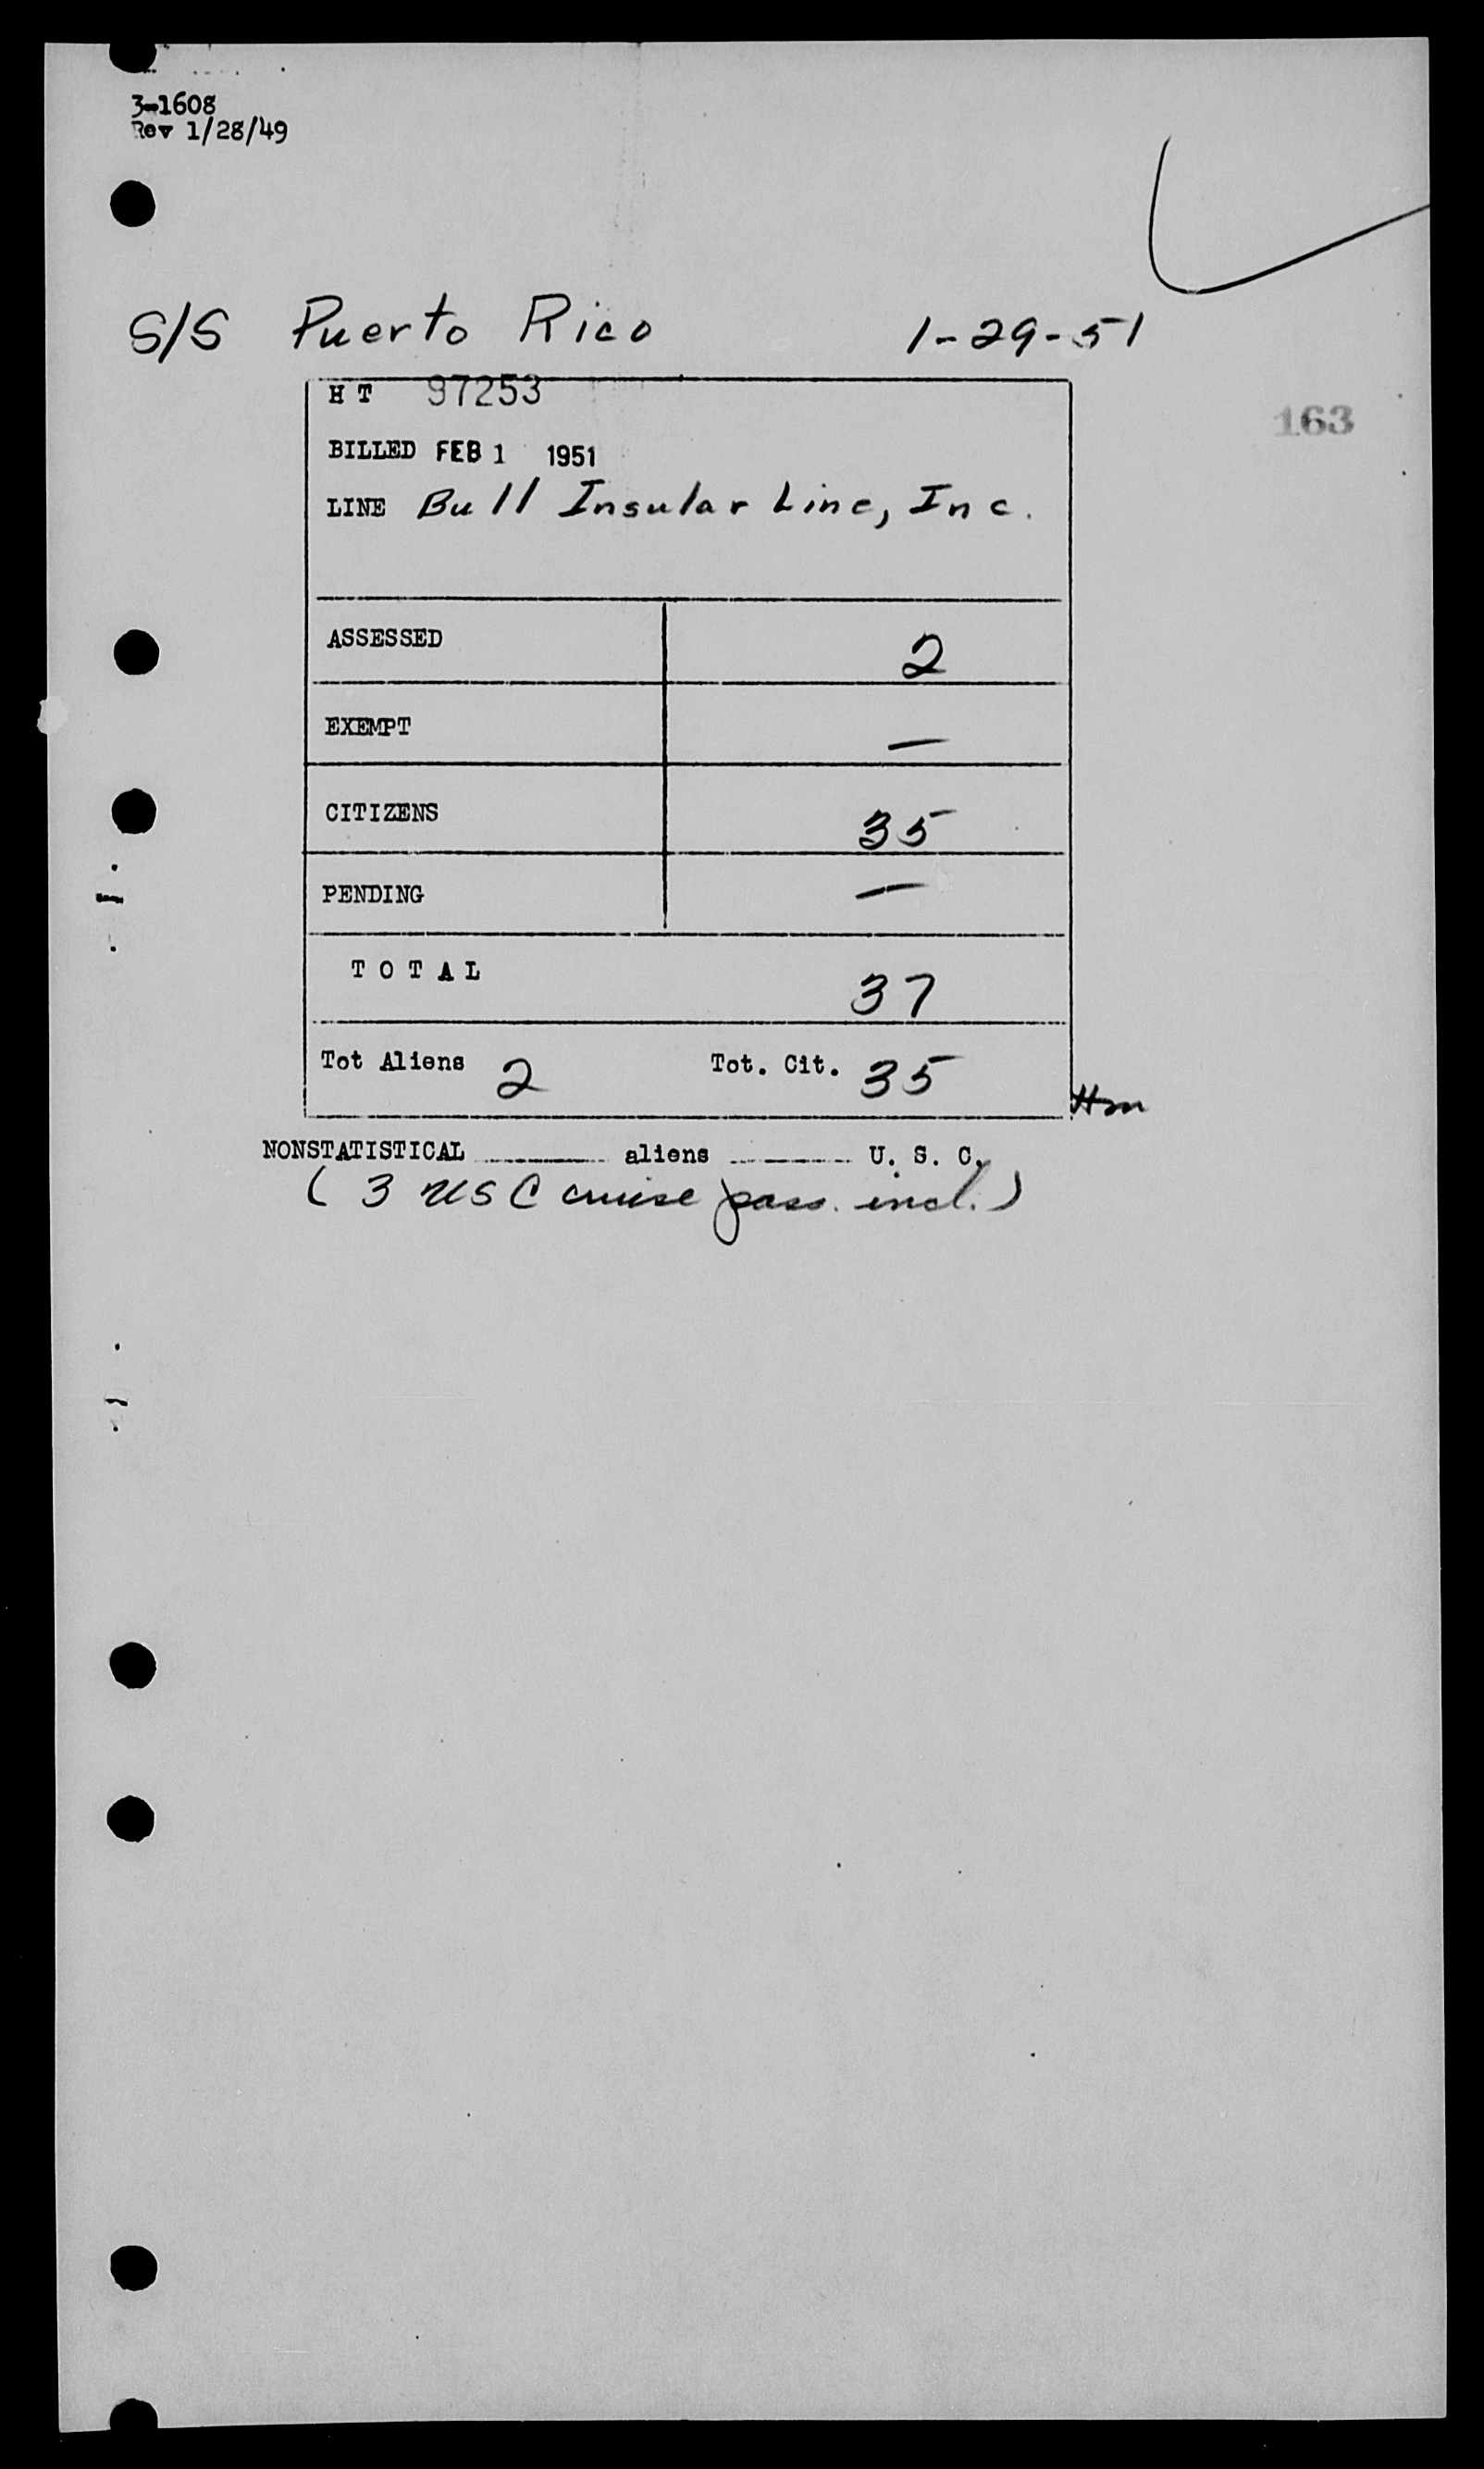 3-1608
Rev 1/28/49
S/S Puerto Rico 1-29-51
HT 97253
163
BILLED FEB 1 1951
LINE Bull Insular Line, Inc.
ASSESSED 2
EXEMPT —
CITIZENS 35
PENDING —
TOTAL 37
Tot Aliens 2 Tot. Cit. 35
Hm
NONSTATISTICAL aliens U. S. C.
(3 USC cruise pass. incl.)